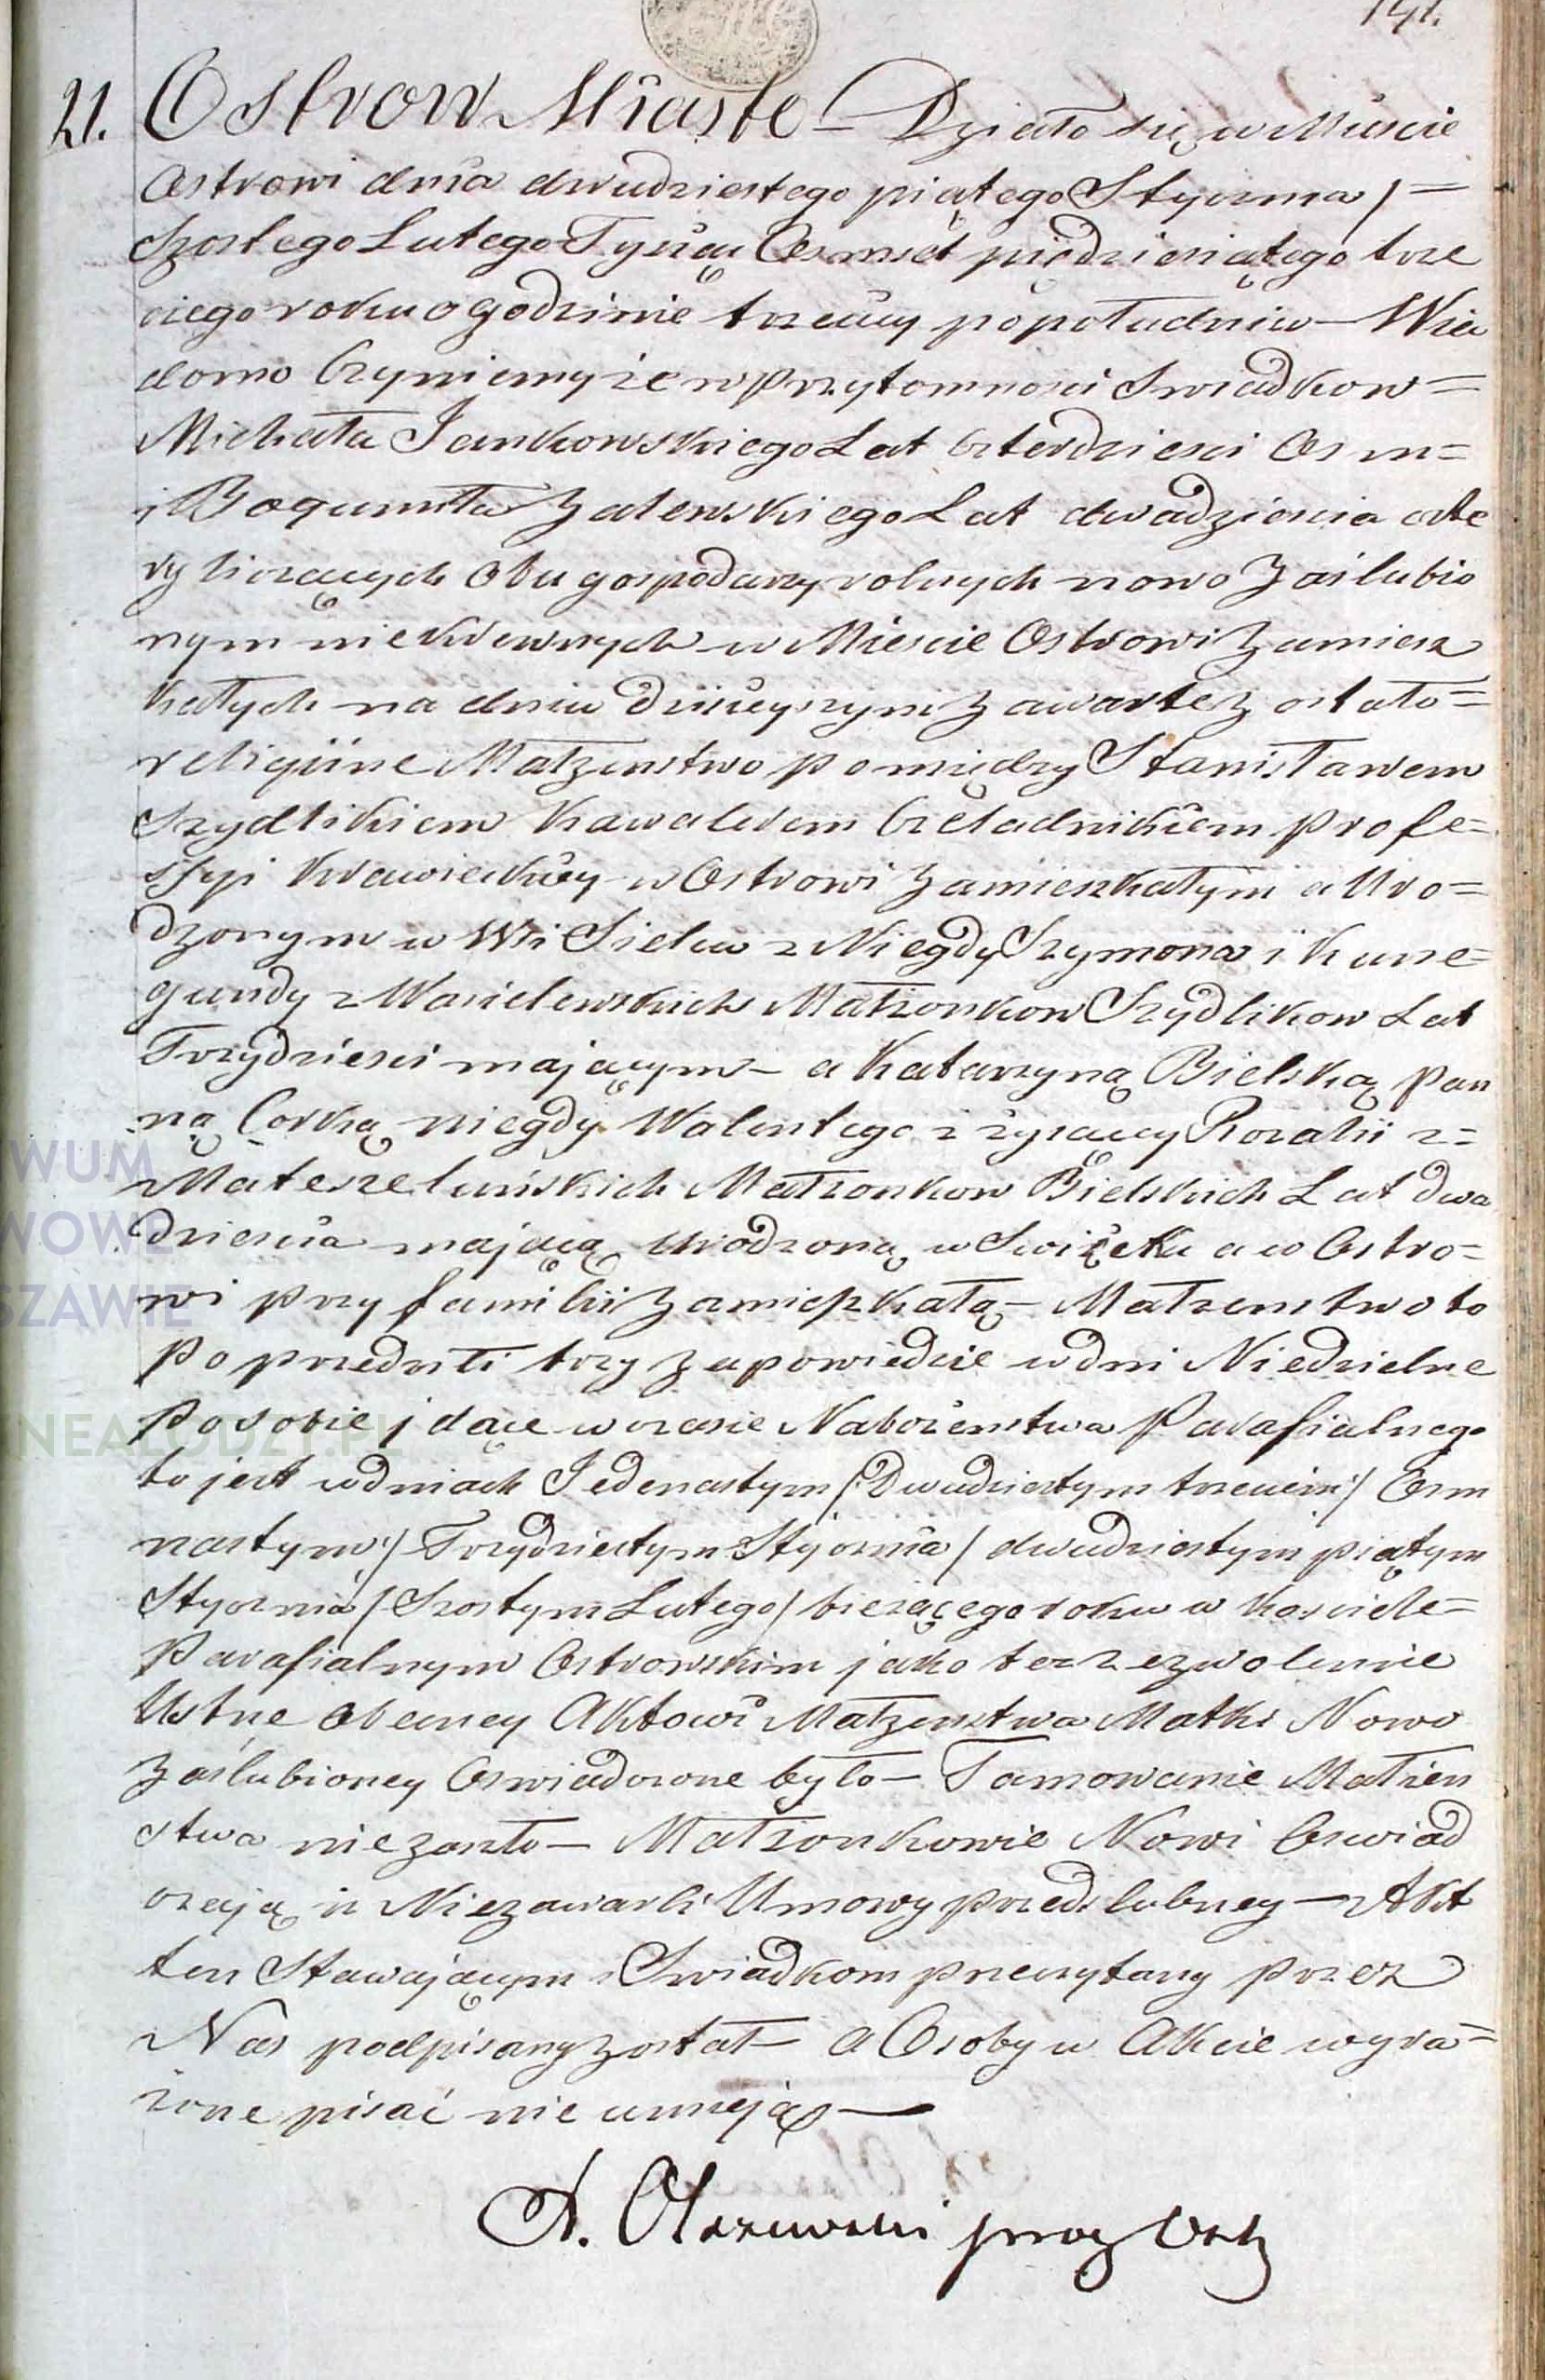 21. Ostrow Miasto – Działo się w Mieście
Ostrowi dnia dwudziestego piątego Stycznia / =
Szostego Lutego Tysiąc Osmset piędziesiątego trze
ciego roku o godzinie trzeciey popołudniu – Wia
domo Czyniemy że w przytomnosci Swiadkow =
Michała Jankowskiego Lat czterdziesci Osm =
i Bogumiła Zalewskiego Lat dwadziescia czte
ry liczących Obu gospodarzy rolnych nowo Zaślubio
nym niekrewnych w Miescie Ostrowi Zamiesz
kałych na dniu dzisieyszym Zawarte Zostało =
religiine Małzenstwo pomiędzy Stanisławem
Szydlikiem Kawalerem Czeladnikiem profe=
ssyi Krawieckiey w Ostrowi Zamieszkałym a Uro=
dzonym w Wsi Sielcu z Niegdy Szymona i Kune=
gundy z Wasielewskich Małzonkow Szydlikow Lat
Trzydziesci mającym – a Katarzyną Bielską pan
ną Corką niegdy Walentego i zyiącey Rozalii z=
Mateszeluńskich Małzonkow Bielskich Lat dwa
dziescia mającą urodzoną w a w Ostro=
wi przy familii Zamieszkałą – Małzenstwo to
poprzedziłi trzy Zapowiedzie w dni Niedzielne
po sobie jdące w czasie Nabożenstwa Parafialnego
to jest w dniach Jedenastym / Dwudziestym trzecim / Osm
nastym / Trzydziestym Stycznia / dwudziestym piątym
Stycznia / Szostym Lutego / bieżącego roku w Kosciele =
Parafialnym Ostrowskim jako tez zezwolenie
Ustne obecney Aktowi Małzenstwa Matki Nowo
Zaślubioney Oswiadczone było – Tamowanie Małżen
stwa niezaszło – Małżonkowie Nowi Oswiad
czają iz Niezawarli Umowy przedslubney – Akt
ten Stawającym i Swiadkom przeczytany przez
Nas podpisany został – a Osoby w Akcie wyra=
żone pisać nie umieją –
Olszewski
WUM
WOWE
SZAWIE
NEALODZY.PL